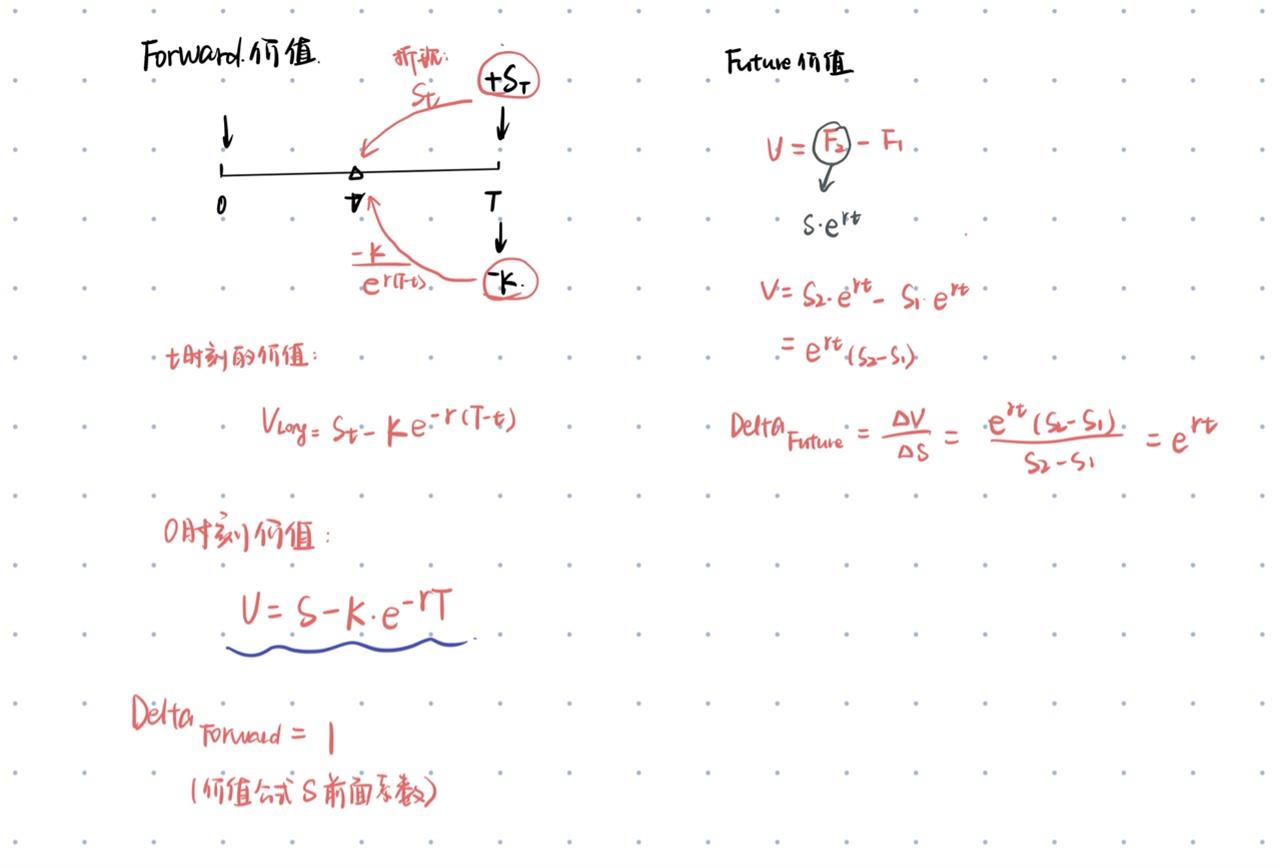 Forward 价值.
折现:
St
+S_T
0
t
T
-K / e^{r(T-t)}
-K.
t时刻的价值:
V_Long = St - Ke^{-r(T-t)}
0时刻价值:
V = S - K·e^{-rT}
Delta_Forward = 1
(价值公式 S 前面系数)
Future 价值
V = F₂ - F₁
S·e^{rt}
V = S₂·e^{rt} - S₁·e^{rt}
= e^{rt}(S₂-S₁)
Delta_Future = ΔV/ΔS = e^{rt}(S₂-S₁)/(S₂-S₁) = e^{rt}